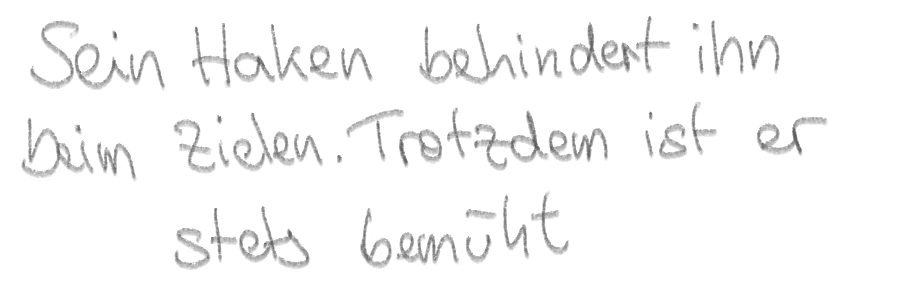 Sein Haken behindert ihn
beim Zielen. Trotzdem ist er
stets bemüht